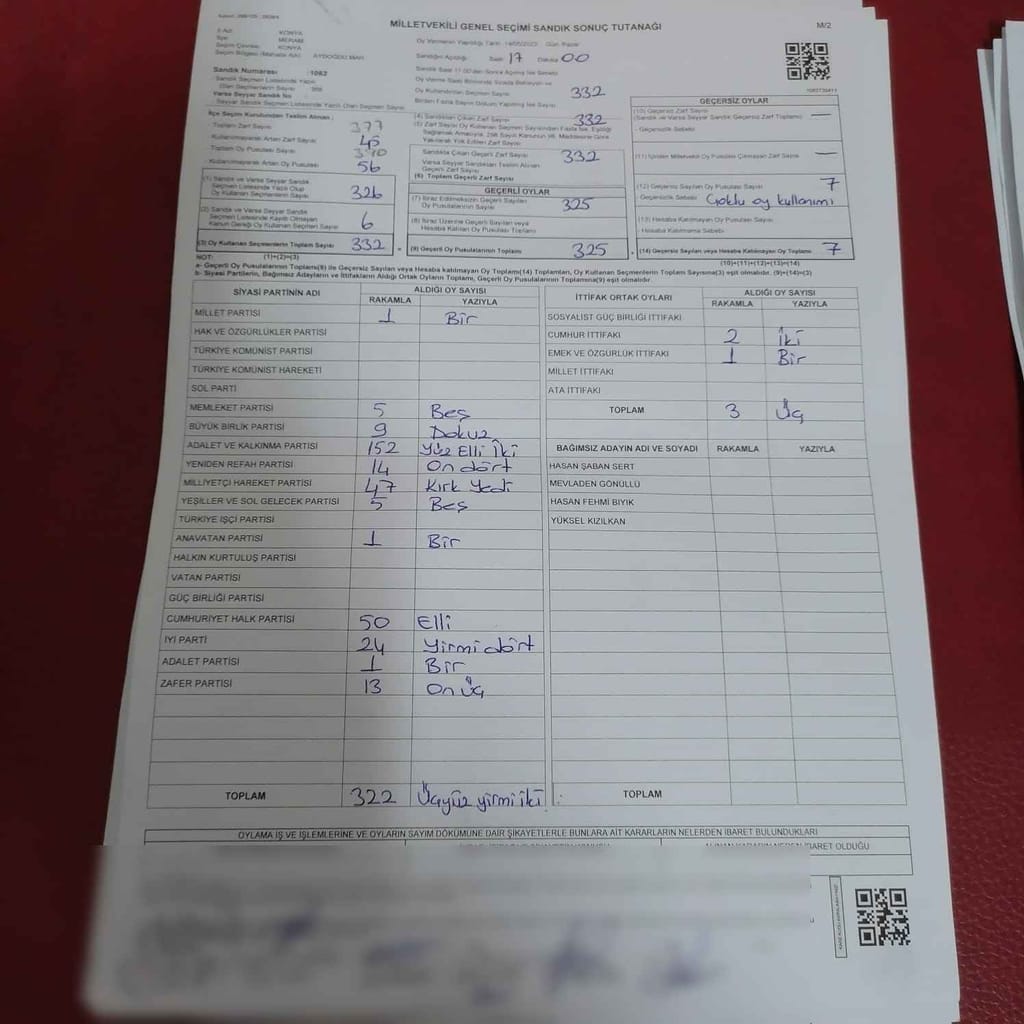 MİLLETVEKİLİ GENEL SEÇİMİ SANDIK SONUÇ TUTANAĞI
M/2
İl Adı: KONYA
İlçe: MERAM
Seçim Çevresi: KONYA
Seçim Bölgesi (Mahalle Adı): AYDOĞDU MAH
Oy Vermenin Yapıldığı Tarih: 14/05/2023 Gün: Pazar
Sandığın Açıldığı Saati 17 Dakika 00
Sandık Numarası : 1082
Sandık Seçmen Listesinde Yazılı
Olan Seçmenlerin Sayısı
Varsa Seyyar Sandık No
Seyyar Sandık Seçmen Listesinde Yazılı Olan Seçmen Sayısı
Oy Kullandırılan Seçmen Sayısı 332
Birden Fazla Sayım Döküm Yapılmış İse Sayısı
İlçe Seçim Kurulundan Teslim Alınan;
Toplam Zarf Sayısı 377
Kullanılmayarak Artan Zarf Sayısı 45
Toplam Oy Pusulası Sayısı
Kullanılmayarak Artan Oy Pusulası 56
(1) Sandık ve Varsa Seyyar Sandık
Seçmen Listesinde Yazılı Olup
Oy Kullanan Seçmenlerin Sayısı 326
(2) Sandık ve Varsa Seyyar Sandık
Seçmen Listesinde Kayıtlı Olmayan
Kanun Gereği Oy Kullanan Seçmen Sayısı 6
(3) Oy Kullanan Seçmenlerin Toplam Sayısı 332
(1)+(2)=(3)
(4) Sandıktan Çıkan Zarf Sayısı 332
Sandıkta Çıkan Geçerli Zarf Sayısı 332
Varsa Seyyar Sandıktan Teslim Alınan
Geçerli Zarf Sayısı
(6) Toplam Geçerli Zarf Sayısı
GEÇERLİ OYLAR
(7) İtiraz Edilmeksizin Geçerli Sayılan
Oy Pusulalarının Sayısı 325
(8) İtiraz Üzerine Geçerli Sayılan veya
Hesaba Katılan Oy Pusulası Toplamı
(9) Geçerli Oy Pusulalarının Toplamı 325
GEÇERSİZ OYLAR
(10) Geçersiz Zarf Sayısı
(Sandık ve Varsa Seyyar Sandık Geçersiz Zarf Toplamı) —
- Geçersizlik Sebebi
(11) İçinden Milletvekili Oy Pusulası Çıkmayan Zarf Sayısı —
(12) Geçersiz Sayılan Oy Pusulası Sayısı 7
- Geçersizlik Sebebi Çoklu oy kullanımı
(13) Hesaba Katılmayan Oy Pusulası Sayısı
- Hesaba Katılmama Sebebi
(14) Geçersiz Sayılan veya Hesaba Katılmayan Oy Toplamı 7
(10)+(11)+(12)+(13)=(14)
NOT:
a- Geçerli Oy Pusulalarının Toplamı(9) ile Geçersiz Sayılan veya Hesaba katılmayan Oy Toplamı(14) Toplamları, Oy Kullanan Seçmenlerin Toplam Sayısına(3) eşit olmalıdır. (9)+(14)=(3)
b- Siyasi Partilerin, Bağımsız Adayların ve İttifakların Aldığı Ortak Oyların Toplamı, Geçerli Oy Pusulalarının Toplamına(9) eşit olmalıdır.
SİYASİ PARTİNİN ADI ALDIĞI OY SAYISI
RAKAMLA YAZIYLA
MİLLET PARTİSİ 1 Bir
HAK VE ÖZGÜRLÜKLER PARTİSİ
TÜRKİYE KOMÜNİST PARTİSİ
TÜRKİYE KOMÜNİST HAREKETİ
SOL PARTİ
MEMLEKET PARTİSİ 5 Beş
BÜYÜK BİRLİK PARTİSİ 9 Dokuz
ADALET VE KALKINMA PARTİSİ 152 Yüz Elli İki
YENİDEN REFAH PARTİSİ 14 On dört
MİLLİYETÇİ HAREKET PARTİSİ 47 Kırk Yedi
YEŞİLLER VE SOL GELECEK PARTİSİ 5 Beş
TÜRKİYE İŞÇİ PARTİSİ
ANAVATAN PARTİSİ 1 Bir
HALKIN KURTULUŞ PARTİSİ
VATAN PARTİSİ
GÜÇ BİRLİĞİ PARTİSİ
CUMHURİYET HALK PARTİSİ 50 Elli
İYİ PARTİ 24 Yirmi dört
ADALET PARTİSİ 1 Bir
ZAFER PARTİSİ 13 On Üç
TOPLAM 322 Üçyüz yirmi iki
İTTİFAK ORTAK OYLARI ALDIĞI OY SAYISI
RAKAMLA YAZIYLA
SOSYALİST GÜÇ BİRLİĞİ İTTİFAKI
CUMHUR İTTİFAKI 2 İki
EMEK VE ÖZGÜRLÜK İTTİFAKI 1 Bir
MİLLET İTTİFAKI
ATA İTTİFAKI
TOPLAM 3 Üç
BAĞIMSIZ ADAYIN ADI VE SOYADI RAKAMLA YAZIYLA
HASAN ŞABAN SERT
MEVLADEN GÖNÜLLÜ
HASAN FEHMİ BIYIK
YÜKSEL KIZILKAN
TOPLAM
OYLAMA İŞ VE İŞLEMLERİNE VE OYLARIN SAYIM DÖKÜMÜNE DAİR ŞİKAYETLERLE BUNLARA AİT KARARLARIN NELERDEN İBARET BULUNDUKLARI